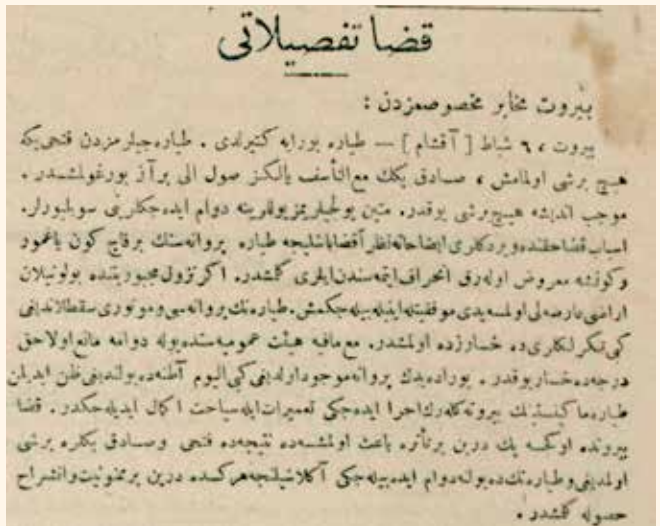 قضا تفصيلاتى
بيروت مخابر مخصوصمزدن :
بيروت ، ٦ شباط [ آقشام ] — طياره بورايه كتيرلدى . طياره جيلرمزدن فتحى بكه
هيچ برشى اولمامش ، صادق بكك مع التأسف يالكز صول الى بر آز بورغولمشدر .
موجب انديشه هيچ برشى يوقدر. متين يولجيلريمز يوللرينه دوام ايده جكلرينى سويليورلر.
اسباب قضا حقنده ويردكلرى ايضاحاته نظراً قضا باشليجه طياره پروانه سنك برقاچ كون ياغمور
وكونشه معروض اوله رق انحراف ايتمه سندن ايلرى كلمشدر. اكر نزول مجبوريتنده بولونيلان
اراضى عارضه لى اولمسه يدى موفقيتله اينيله بيله جكمش. طياره نك پروانه سى وموتورى سقطلانديغى
كبى تكرلكلرى ده خسارزده اولمشدر. مع مافيه هيئت عموميه سنده يوله دوامه مانع اولاجق
درجه ده خسار يوقدر . بوراده يدك پروانه موجود اولديغى كبى اليوم آطنه ده بولنديغى ظن ايديلن
طياره ماكينستينك بيروته كله رك اجرا ايده جكى تعميرات ايله سياحت اكمال ايديله جكدر. قضا
بيروتده اولكجه پك درين برتأثره باعث اولمشسه ده نتيجه ده فتحى وصادق بكلره برشى
اولمديغى وطياره نك ده يوله دوام ايده بيله جكى آكلاشيلنجه هركسده درين بر ممنونيت وانشراح
حصوله كلمشدر .